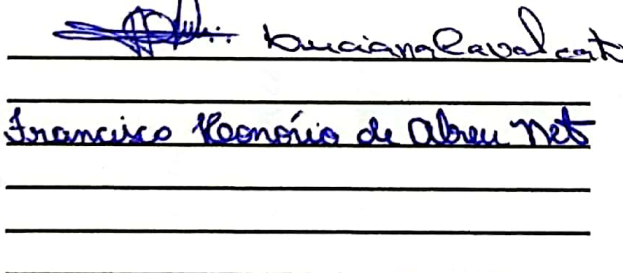 Luciana Cavalcant
Francisco Honório de Abreu Net